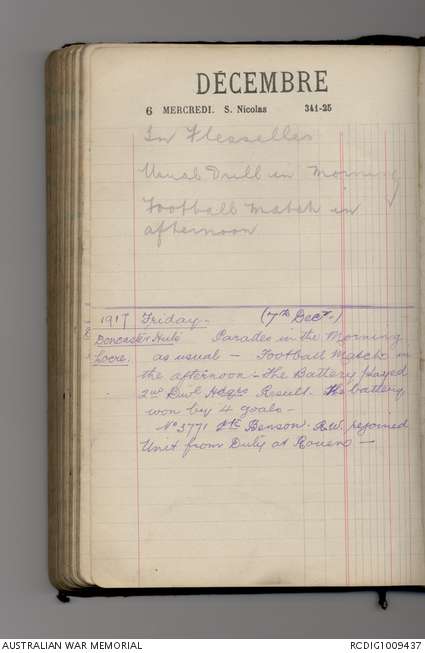 DÉCEMBRE
6 MERCREDI. S. Nicolas 341-25
In Flesselles
Usual Drill in morning
Football match in
afternoon
1917 Friday. (7th Decr.)
Doncaster Huts Parades in the Morning
Locre. as usual - Football Match in
the afternoon - The Battery played
2nd Divl Hdqrs Result. The battery
won by 4 goals -
No 3771 Pte Benson. R.W. rejoined
Unit from Duty at Rouens -
AUSTRALIAN WAR MEMORIAL RCDIG1009437